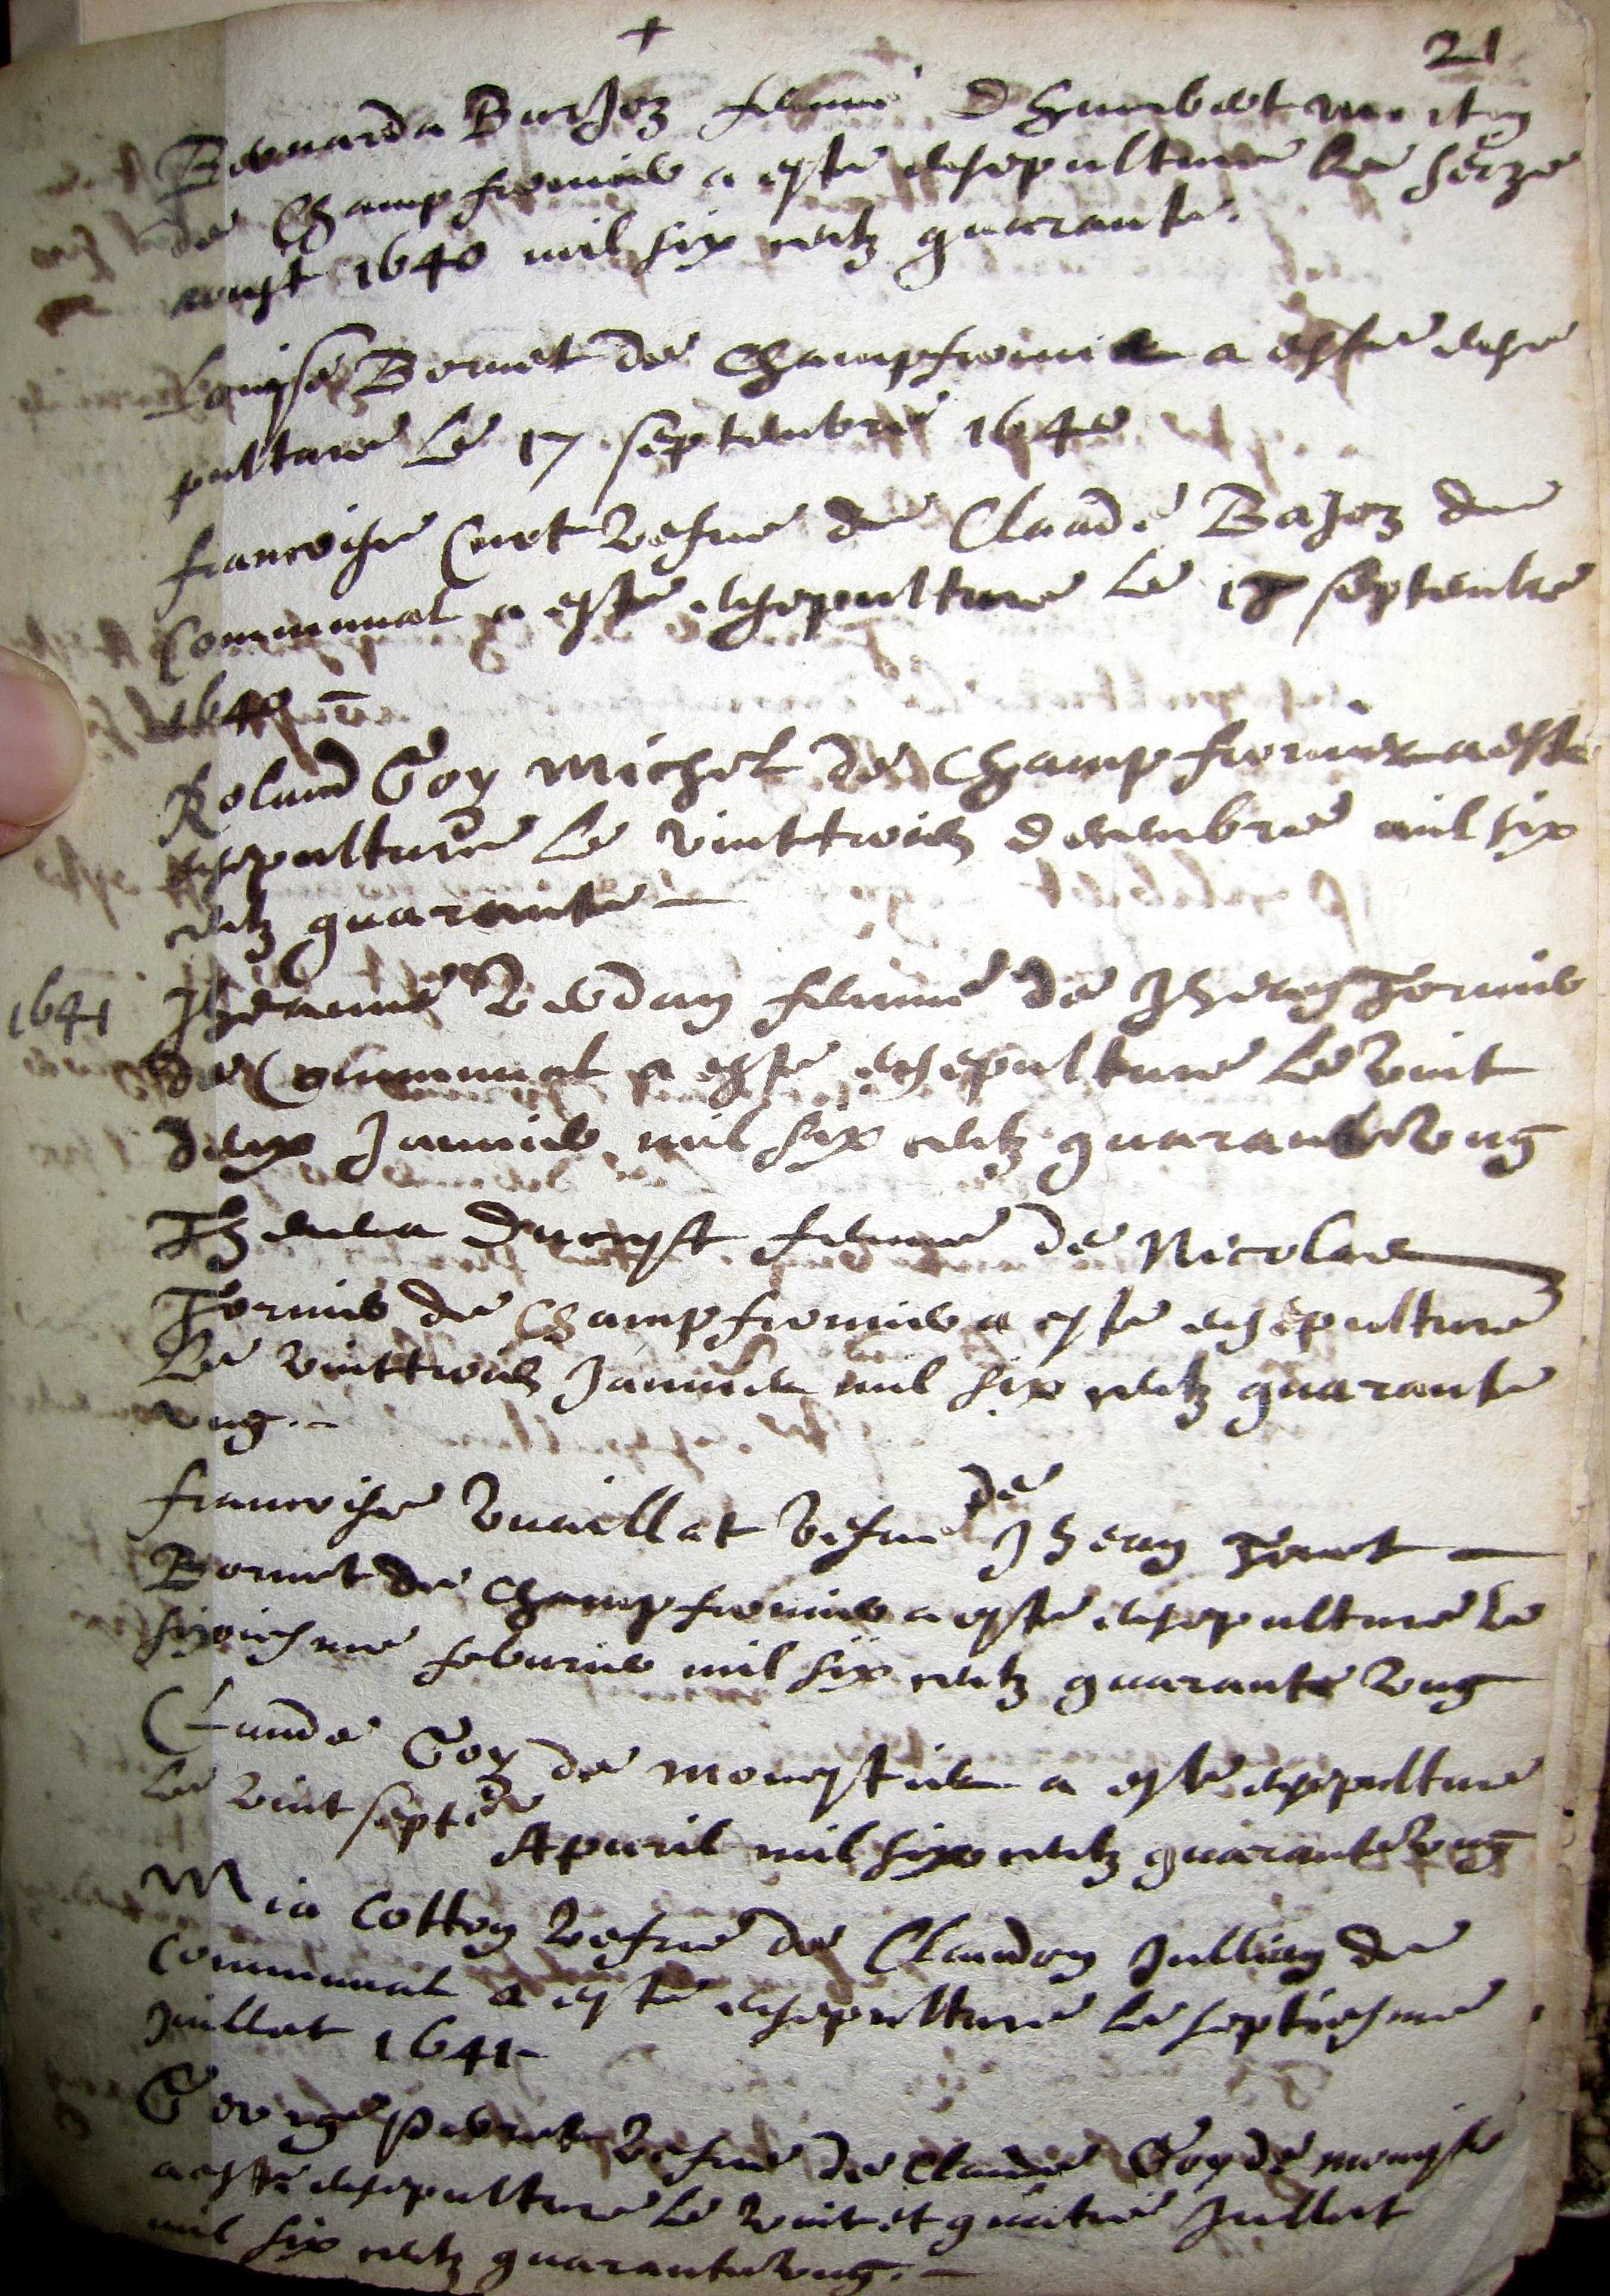 + 21
Bernarda Barjoz femme d Humbert
de Champfromier a este ensepulture le seize
aoust 1640 mil six centz quarante.
Louyse Bornet de Champfromier a este ense
pulture le 17 septembre 1640
francoise Curt vefue de Claude Bajoz de
Communal a este ensepulture le 17 septembre
1640
Roland Goy Michel de Champfromier a este
ensepulture le vinttrois decembre mil six
centz quarante
1641 Jheanne verdan femme de Jhean Tornier
de Communal a este ensepulture le vint
deux Januier mil six centz quarante vng
Thenna Ducrest femme de Nicolas
Tornier de Champfromier a este ensepulture
le vinttrois Januier mil six centz quarante
vng.
francoise vuaillat vefue de Jhean Ternet
Bornet de Champfromier a este ensepulture le
sixiesme feburier mil six centz quarante vng
Claude Goy de monestier a este ensepulture
le vint sept Apuril mil six centz quarante vng
Mia Cotton vefue de Claudon Jullian de
Communal a este ensepulture le septiesme
Juillet 1641
George perret vefue de Claude Goy de
a este ensepulture le vint et quatre Jullet
mil six centz quarante vng.